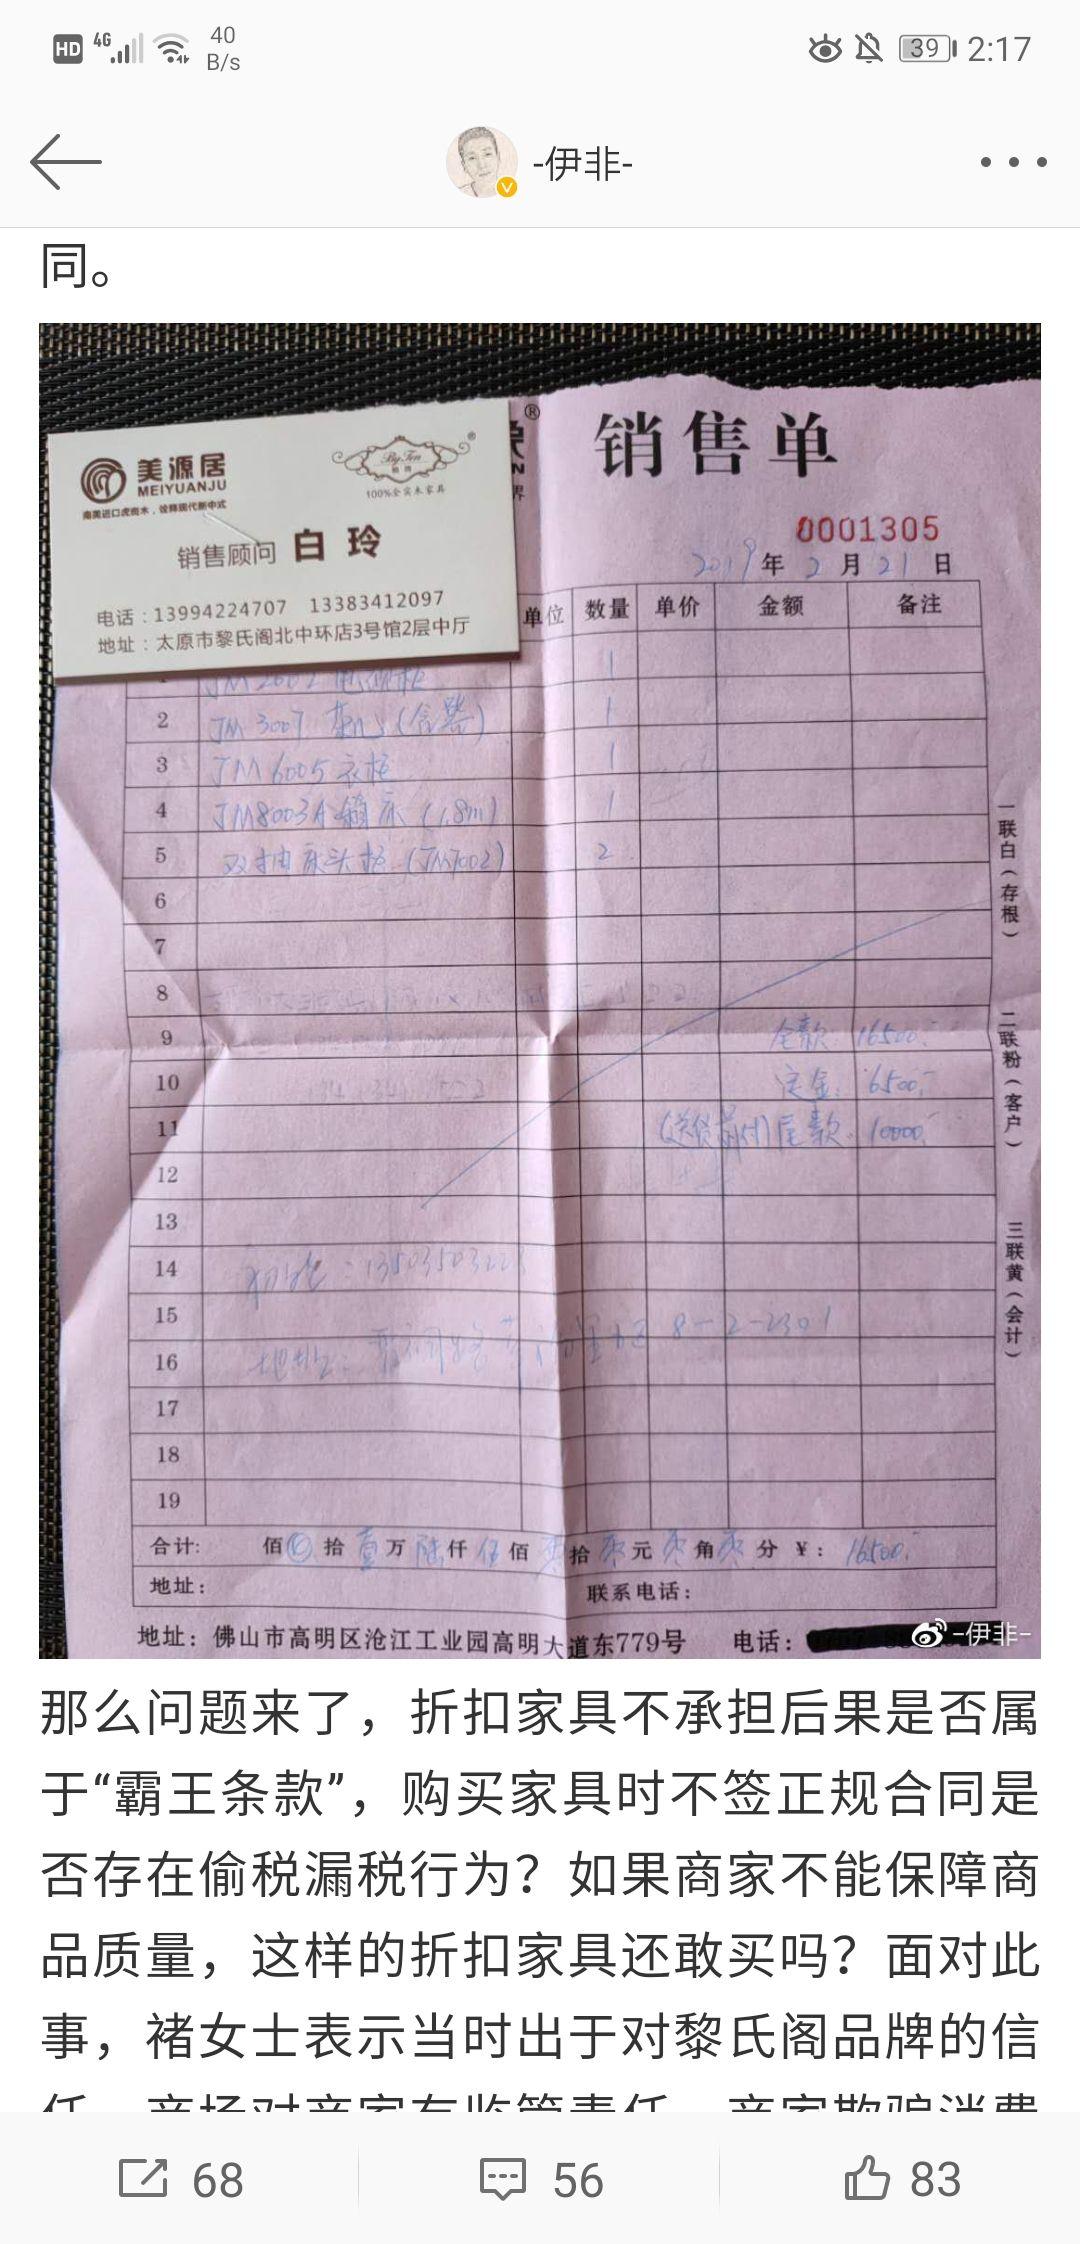 HD 4G 40 B/s 39 2:17
-伊非-
同。
美源居
MEIYUANJU
南美进口虎斑木，诠释现代新中式
100%全实木家具
销售顾问 白玲
电话：13994224707 13383412097
地址：太原市黎氏阁北中环店3号馆2层中厅
销售单
0001305
2019年2月21日
单位 数量 单价 金额 备注
1
2 JM3007 (含器) 1
3 JM6005 衣柜 1
4 JM8003A 箱床 (1.8m) 1
5 双抽床头柜 (JM7002) 2
6
7
8
9 全款: 16500.-
10 定金: 6500.-
11 (送货前付) 尾款 10000.-
12
13
14
15
16 地址: 8-2-2301
17
18
19
合计: 佰 拾 壹万 陆仟 伍佰 零拾 零元 零角 零分 ¥: 16500.-
地址: 联系电话:
地址: 佛山市高明区沧江工业园高明大道东779号 电话:
一联白（存根）
二联粉（客户）
三联黄（会计）
-伊非-
那么问题来了，折扣家具不承担后果是否属
于“霸王条款”，购买家具时不签正规合同是
否存在偷税漏税行为？如果商家不能保障商
品质量，这样的折扣家具还敢买吗？面对此
事，褚女士表示当时出于对黎氏阁品牌的信
任，商场对商家有监管责任，商家欺骗消费
68 56 83